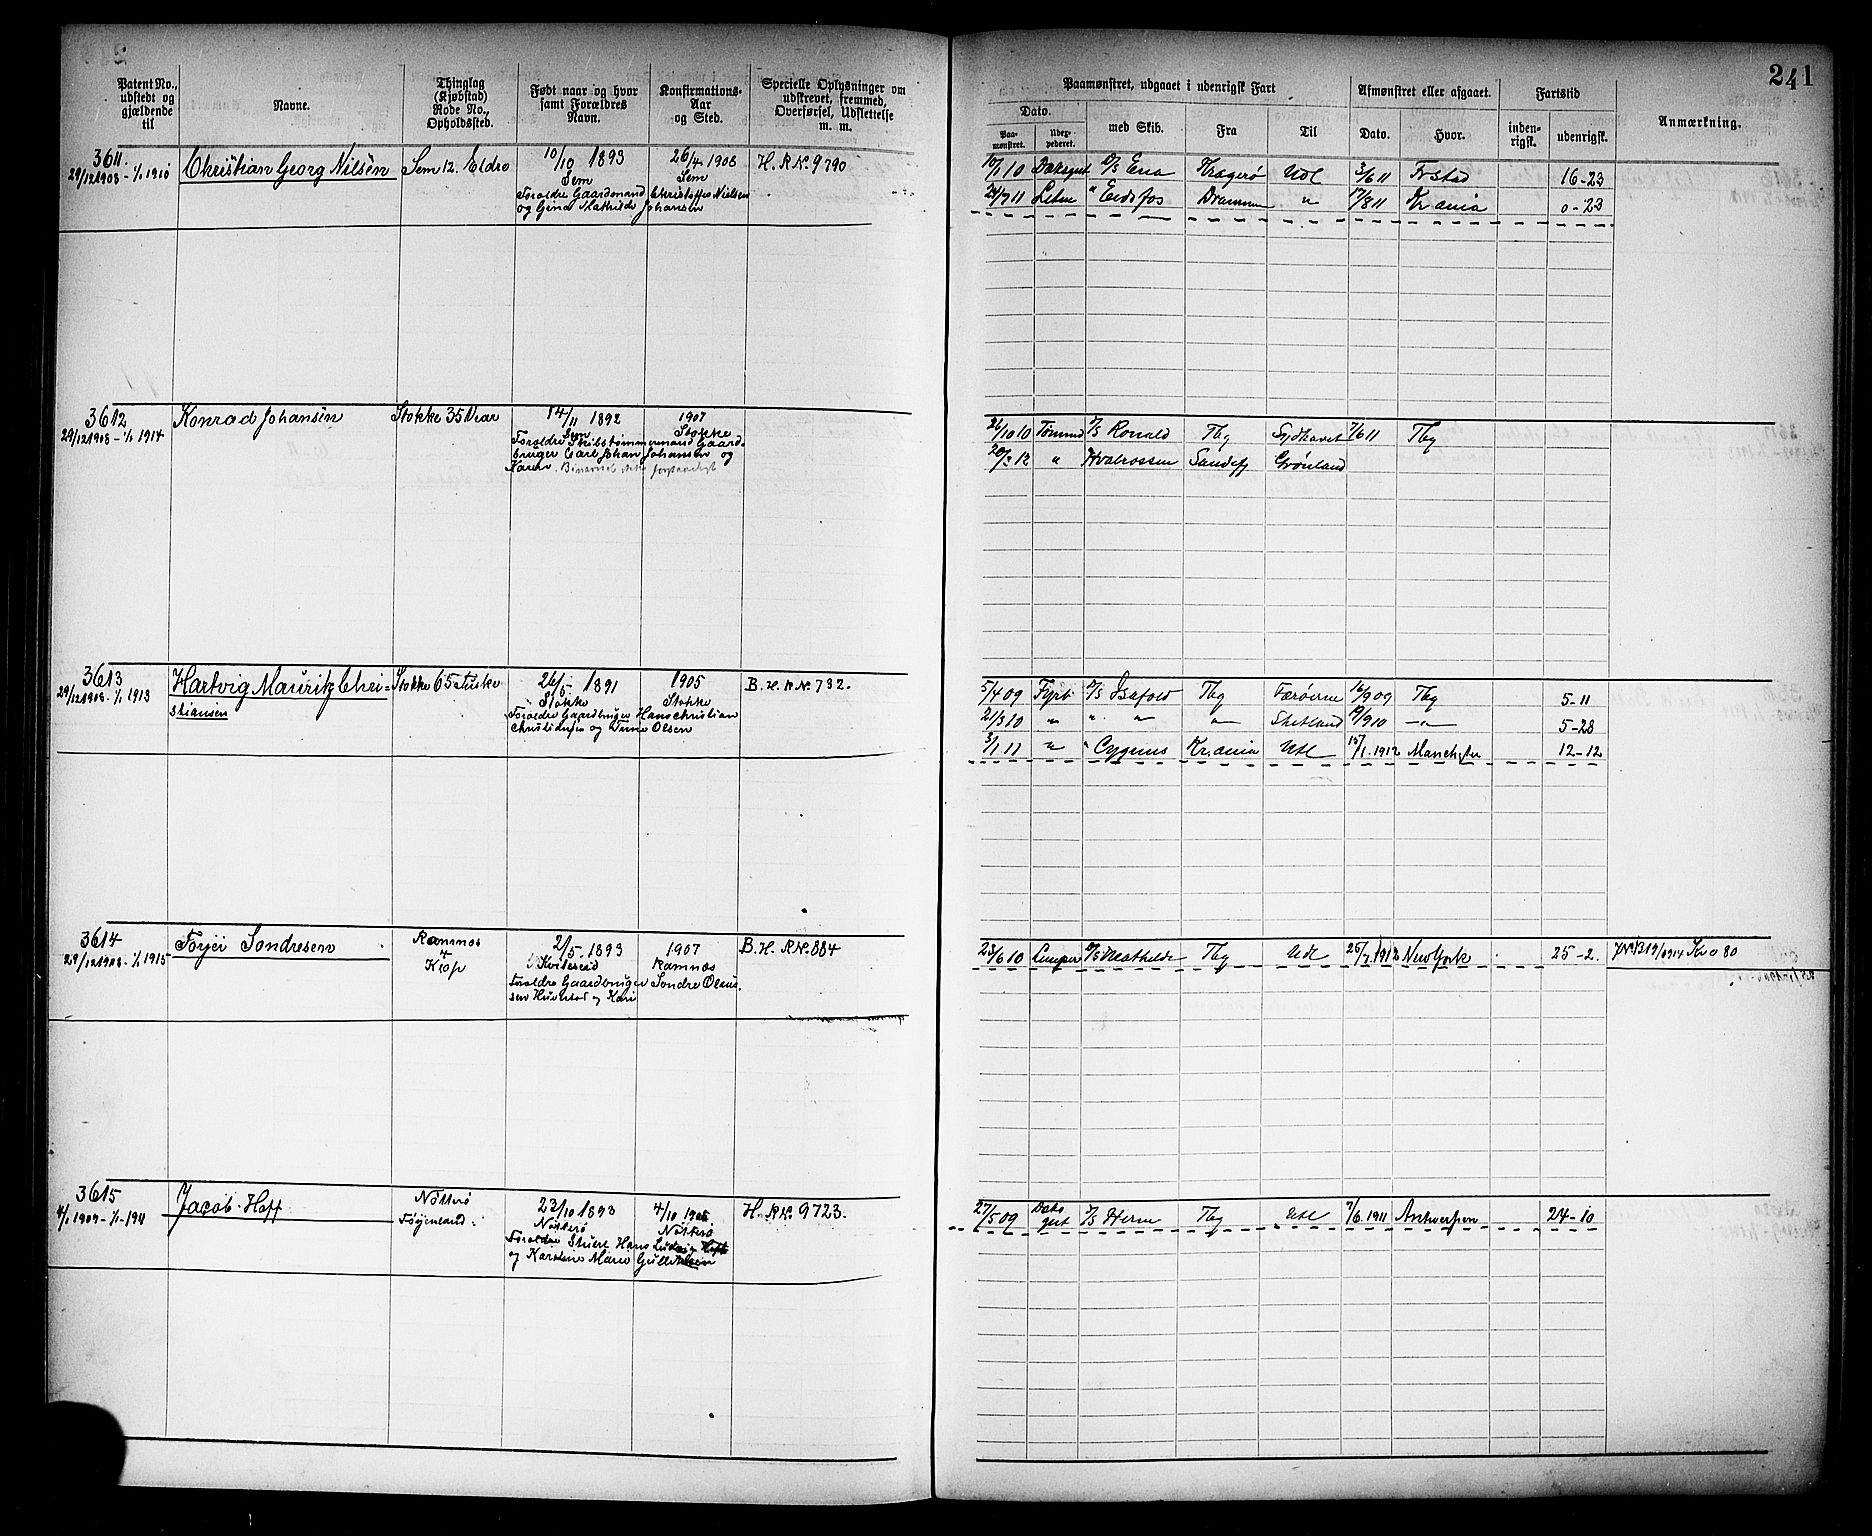 241
Patent No., udstedt og gjældende til
Navne.
Thinglag (Kjøbstad) Rode No., Opholdssted.
Født naar og hvor samt Forældres Navn.
Konfirmations-Aar og Sted.
Specielle Oplysninger om udskrevet, fremmed, Overførsel, Udslettelse m. m.
Paamønstret, udgaaet i udenrigsk Fart
Afmønstret eller afgaaet.
Fartstid
Anmærkning.
Dato.
Paamønstret.
med Skib.
Fra
Til
Dato.
Hvor.
indenrigsk.
udenrigsk.
3611. Christian Georg Nilsen Sem 12. Eldrø 10/10 1893 26/4 1908 H. R.No. 9390
29/12 1908 - 1/1 1910 Sem Sem
Foreldre Gaardmand Christoffer Nielsen
og Gina Mathilde Johansen
10/1 10 D/S Eva Kragerø Udl 3/6 11 Frstad 16-23
24/7 11 " Eidsfos Drammen " 17/8 11 Kr.ania 0-23
3612 Konrad Johansen Stokke 35 Vear 14/11 1892 1907
29/12 1908 - 1/1 1914 Sem Stokke
Foreldre Skibstømmermand Gaard-
bruger Carl Johan Johansen og
Karen.
26/10 10 Tømmd D/S Ronald Tbg Sydhavet 7/6 11 Tbg
20/2 12 " Hvalrossen Sandefj Grønland
3613 Hartvig Mauritz Chri- Stokke 65 26/5 1891 1905 B. H. R No. 732.
29/12 1908 - 1/1 1913 stiansen Stokke Stokke
Foreldre Gaardbruger Hans Christian
Olsen
5/4 09 Fyrb D/S Isafold Tbg Færøerne 16/9 09 Tbg 5-11
21/3 10 " " " " Shetland 19/9 10 -"- 5-28
3/1 11 " " Cygnus Kr.ania Udl 15/1 1912 Manchester 12-12
3614 Torjei Sondresen Ramnæs 2/5 1893 1907 B. H. R No. 884
29/12 1908 - 1/1 1915 4 Kviteseid Ramnæs
Klop Foreldre Gaardbruger Sondre Olsen
og Kari
23/6 10 Lemper D/S Mathilde Tbg Udl 25/7 1912 New York 25-2.
3615 Jacob Hoff Nøtterø 23/10 1893 4/10 H. R No. 9723.
Føyenland. Nøtterø Nøtterø
Foreldre Stuert Hans Ludvig Hoff
og Karoline Marie
27/5 09 D/S Herm Tbg Udl 7/6 1911 Antwerpen 24-10